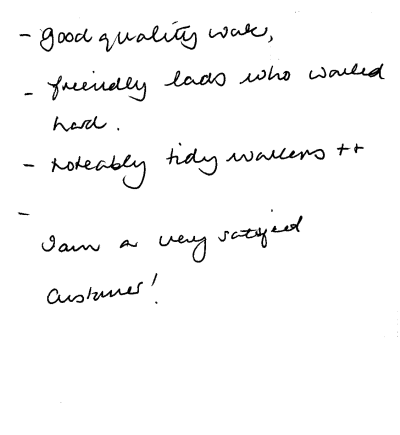 - good quality work,
- friendly lads who worked
hard.
- noteably tidy workers ++
-
I am a very satisfied
customer!